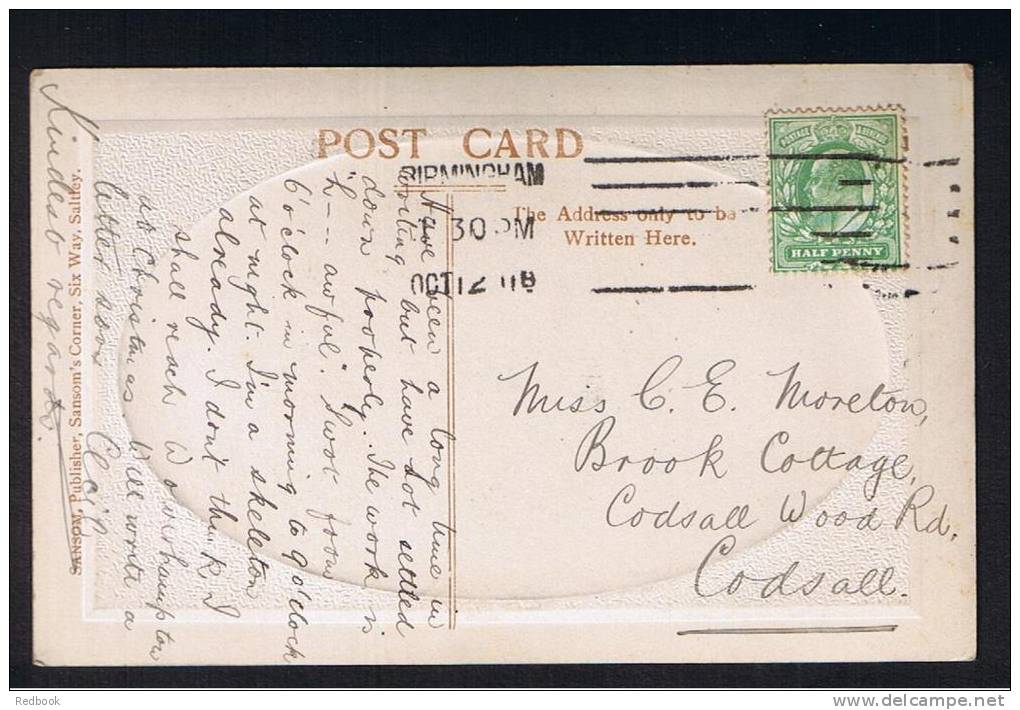 POST CARD
BIRMINGHAM
30 PM
OCT 12
The Address only to be
Written Here.
POSTAGE & REVENUE
HALF PENNY
Have been a long time in
writing but have not settled
down properly. The work is
"h--- awful". Swot from
6 o'clock in morning to 9 o'clock
at night. I'm a skeleton
already. I don't think I
shall reach W'hampton
at Christmas. Will write a
letter soon
Kindest regards.
Miss C. E. Moreton,
Brook Cottage,
Codsall Wood Rd,
Codsall.
SANSOM, Publisher, Sansom's Corner, Six Way, Saltley.
Redbook
www.delcampe.net